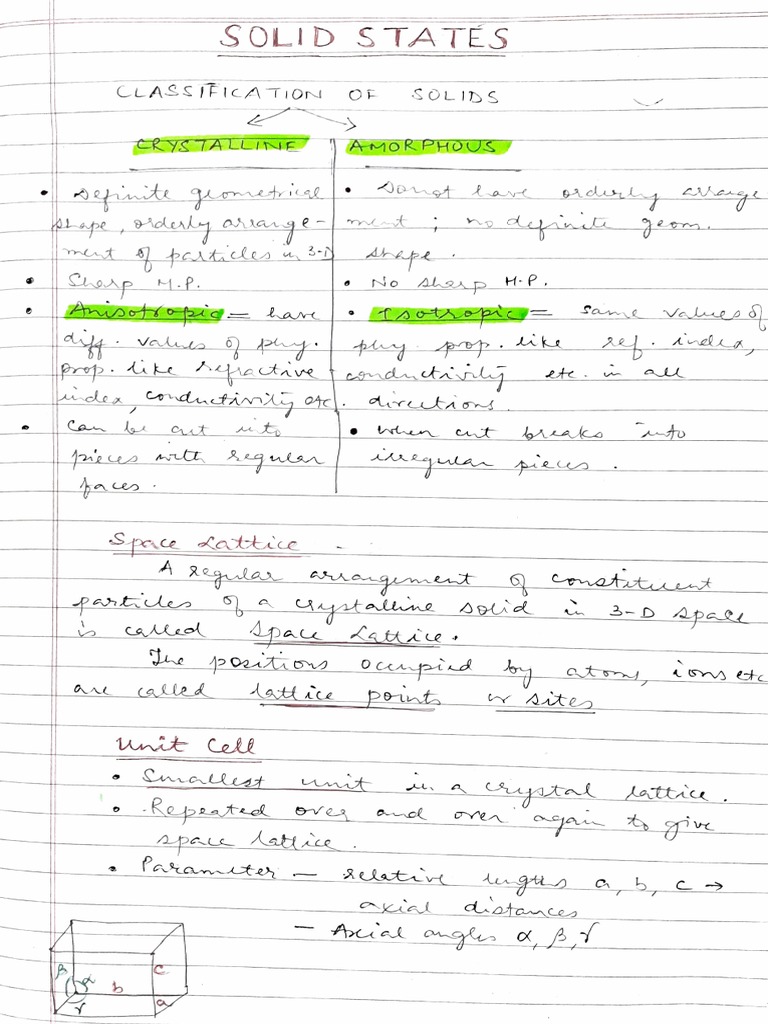 SOLID STATES
CLASSIFICATION OF SOLIDS
CRYSTALLINE
• Definite geometrical
shape, orderly arrange-
ment of particles in 3-D
• Sharp M.P.
• Anisotropic = have
diff. values of phy.
prop. like refractive
index, conductivity etc.
• Can be cut into
pieces with regular
faces.
AMORPHOUS
• Do not have orderly arrange
ment ; no definite geom.
shape.
• No sharp M.P.
• Isotropic = same values of
phy. prop. like ref. index,
conductivity etc. in all
directions.
• When cut breaks into
irregular pieces.
Space Lattice
A regular arrangement of constituent
particles of a crystalline solid in 3-D space
is called Space Lattice.
The positions occupied by atoms, ions etc
are called lattice points or sites
Unit Cell
• Smallest unit in a crystal lattice.
• Repeated over and over again to give
space lattice.
• Parameter — relative lengths a, b, c →
axial distances
— Axial angles α, β, γ
β α b c
γ a